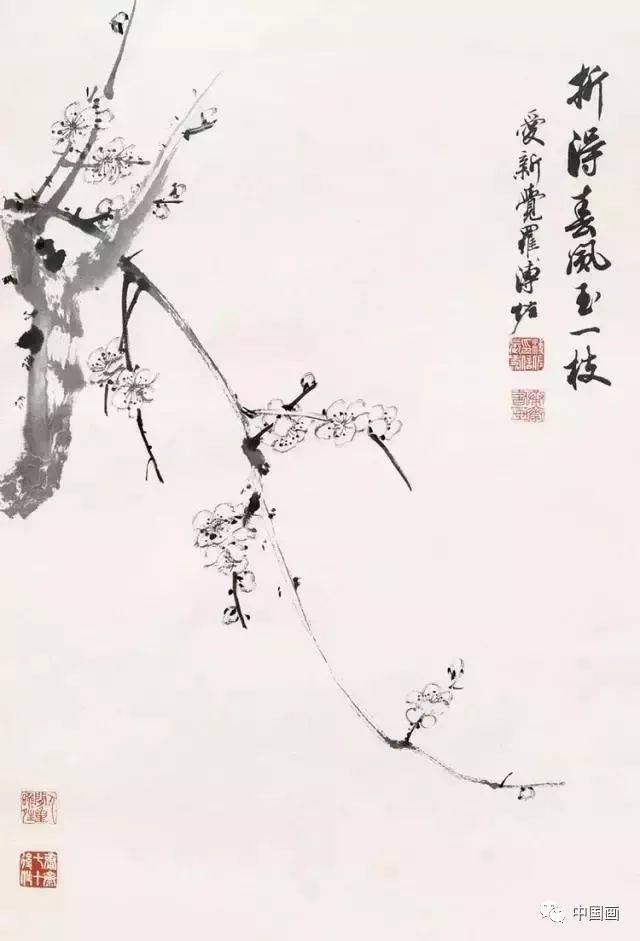 折得春風玉一枝
愛新覺羅溥佐
中国画